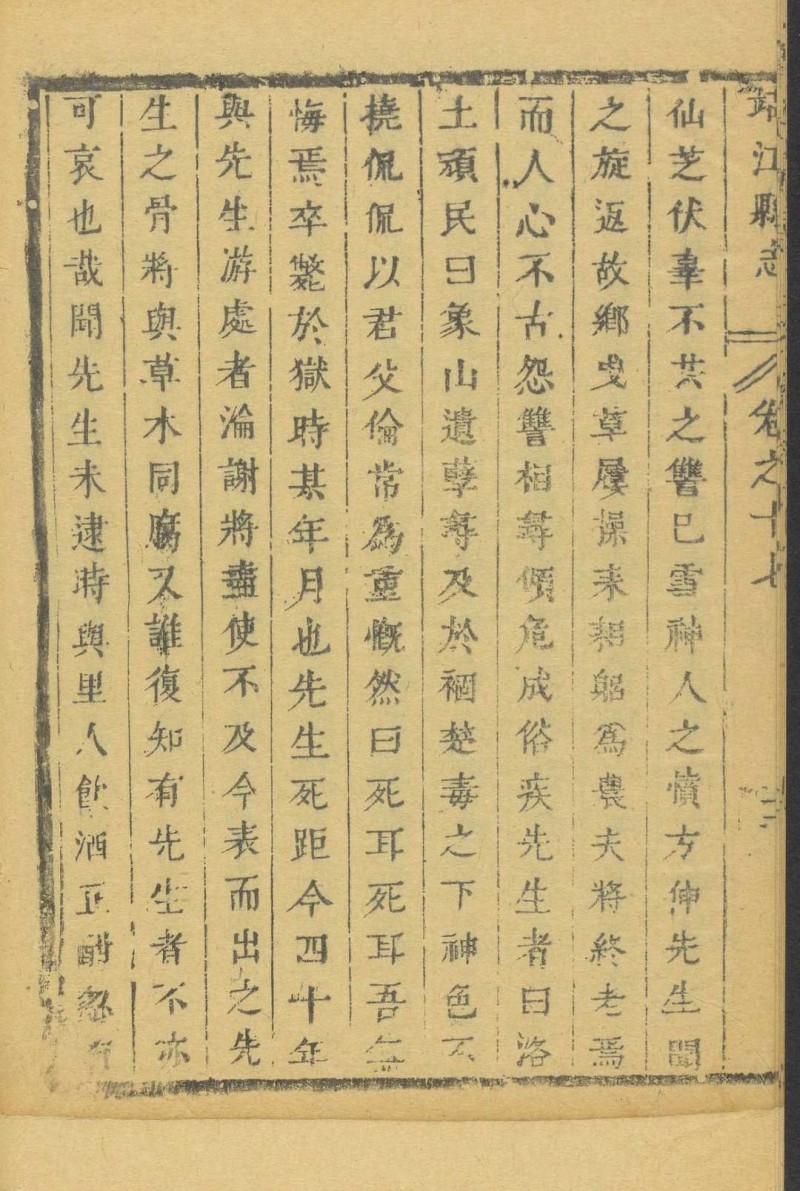 江縣志 卷之十七
仙芝伏辜不共之讐已雪神人之憤方伸先生聞
之旋返故鄉曳草屨操耒耜躬爲農夫將終老焉
而人心不古怨讐相尋傾危成俗疾先生者曰洛
土頑民曰象山遺孽辱及於裀楚毒之下神色不
撓侃侃以君父倫常爲重慨然曰死耳死耳吾無
悔焉卒斃於獄時某年月也先生死距今四十年
與先生游處者淪謝將盡使不及今表而出之先
生之骨將與草木同腐又誰復知有先生者不亦
可哀也哉聞先生未逮時與里人飲酒正酣忽